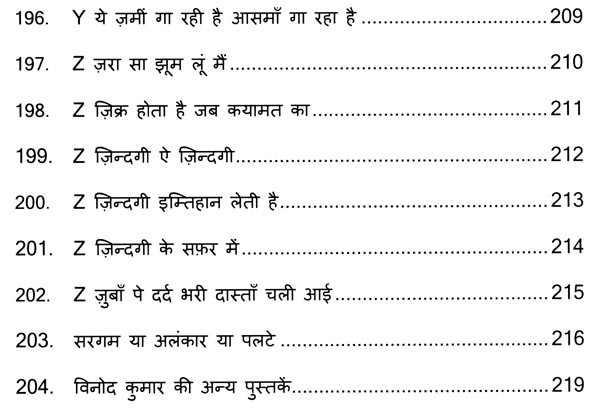 196. Y ये ज़मीं गा रही है आसमाँ गा रहा है ................................209
197. Z ज़रा सा झूम लूं मैं......................................................210
198. Z ज़िक्र होता है जब कयामत का........................................211
199. Z ज़िन्दगी ऐ ज़िन्दगी.....................................................212
200. Z ज़िन्दगी इम्तिहान लेती है..............................................213
201. Z ज़िन्दगी के सफ़र में....................................................214
202. Z ज़ुबाँ पे दर्द भरी दास्ताँ चली आई....................................215
203. सरगम या अलंकार या पलटे ..............................................216
204. विनोद कुमार की अन्य पुस्तकें............................................219